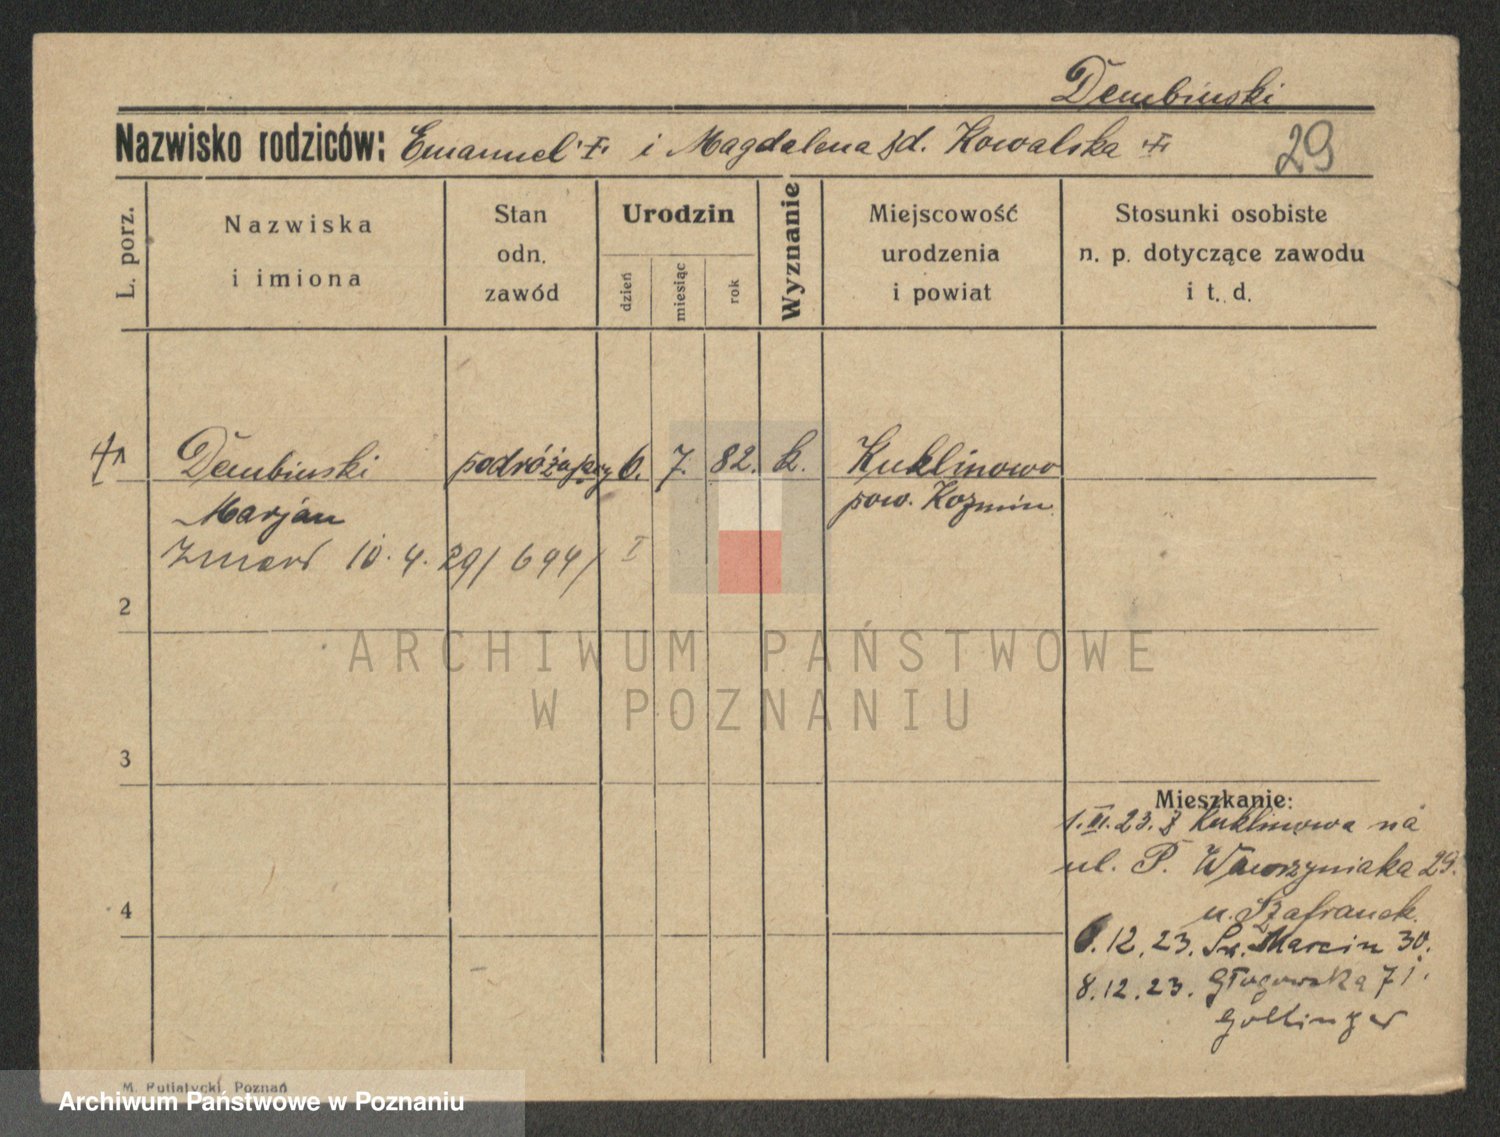 Dembinski
Nazwisko rodziców: Emanuel i Magdalena zd. Kowalska
29
L. porz.
Nazwiska
i imiona
Stan
odn.
zawód
Urodzin
dzień
miesiąc
rok
Wyznanie
Miejscowość
urodzenia
i powiat
Stosunki osobiste
n. p. dotyczące zawodu
i t. d.
1 Dembinski podróżujący 6. 7. 82. k. Kuklinowo
Marjan pow. Kozmin
Zmarł 10.4.29/694/ I
2
3
4
Mieszkanie:
1. 23. z Kuklinowa na
ul. P. Wawrzyniaka 29.
u. Szafranek.
6.12.23. Św. Marcin 30.
8.12.23. Głogowska 71.
Gollinger
M. Putiatycki, Poznań
ARCHIWUM PAŃSTWOWE
W POZNANIU
Archiwum Państwowe w Poznaniu